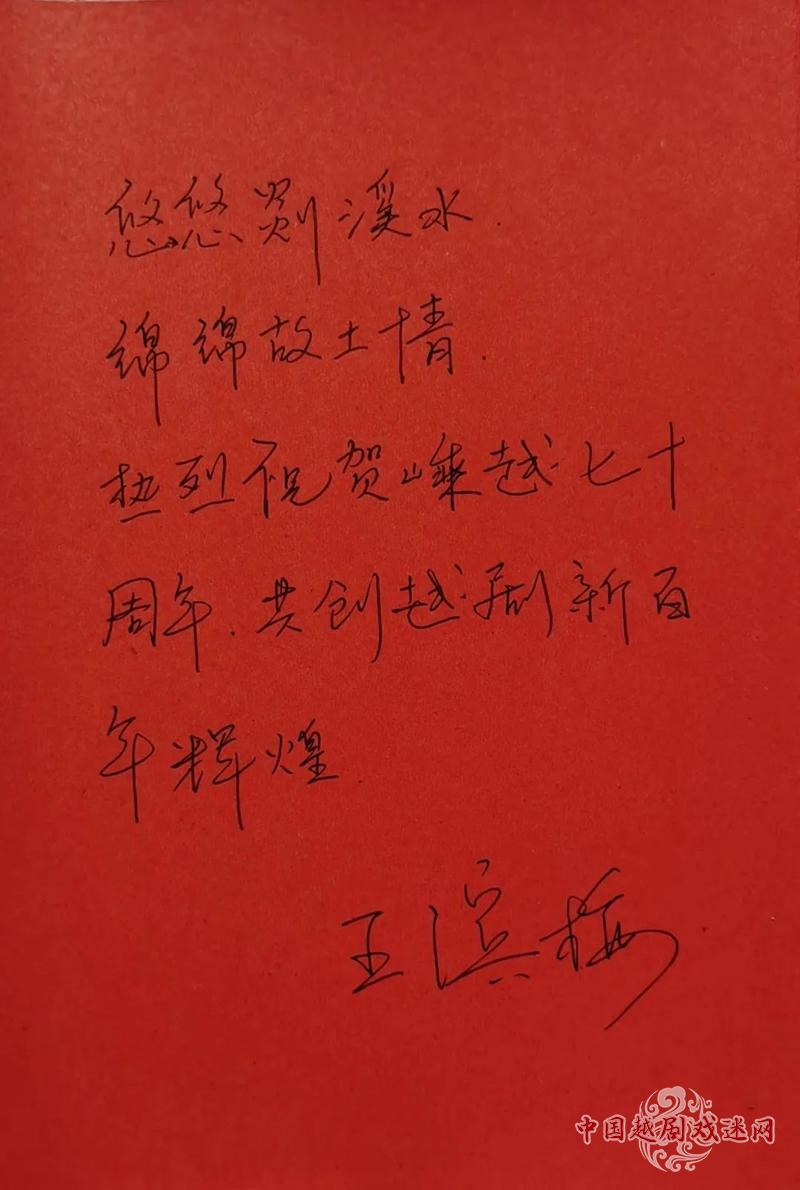 悠悠剡溪水.
绵绵故土情.
热烈祝贺嵊越七十
周年.共创越剧新百
年辉煌.
王滨梅
中国越剧戏迷网